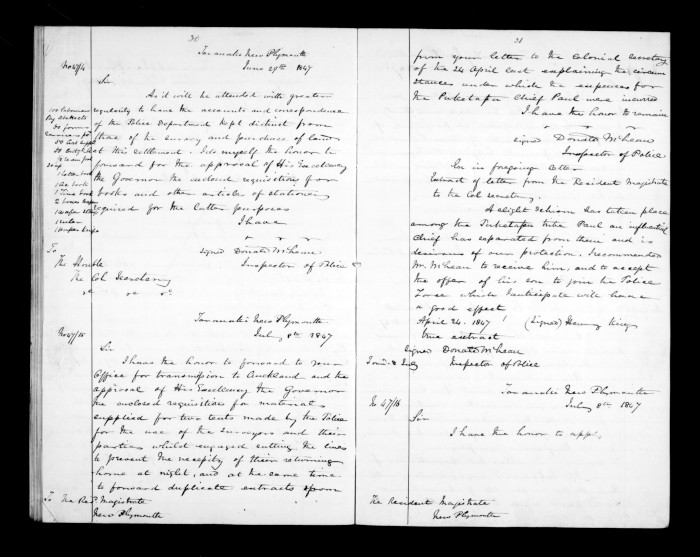 30
Taranaki New Plymouth
June 29th 1847
No 47/14
Sir
As it will be attended with greater
regularity to have the accounts and correspondence
of the Police Department kept distinct from
that of the survey and purchase of land
at this settlement I do myself the honor to
forward for the approval of His Excellency
the Governor the enclosed requisition for
books and other articles of stationery
required for the latter purposes
I have
signed Donald McLean
Inspector of Police
To
The Honble
The Col Secretary
Pay Abstracts
1 Letter book
1 Time book
1 ruler
Taranaki New Plymouth
July 8th 1847
No 47/15
Sir
I have the honor to forward to your
Office for transmission to Auckland and the
approval of His Excellency the Governor
the enclosed requisition for material
supplied for two tents made by the Police
for the use of the Surveyors and their
parties whilst engaged cutting the lines
to prevent the necessity of their returning
home at night, and at the same time
to forward duplicate extracts from
To The Rest Magistrate
New Plymouth
31
from your letter to the Colonial Secretary
of the 24 April last explaining the circum
stances under which the expences for
the Puketapu Chief Paul were incurred
I have the honor to remain
signed Donald McLean
Inspector of Police
In foregoing letter
Extract of letter from the Resident Magistrate
to the Col secretary.
A slight schism has taken place
among the Puketapu tribe Paul an influential
Chief has separated from them and is
desirous of our protection. I recommended
Mr. McLean to receive him, and to accept
the offer of his son to join his Police
Force which I anticipate will have
a good effect
April 24. 1847 (signed) Henry King
true extract
signed Donald McLean
Inspector of Police
Taranaki New Plymouth
July 8th 1847
No 47/16
Sir
I have the honor to apply
The Resident Magistrate
New Plymouth